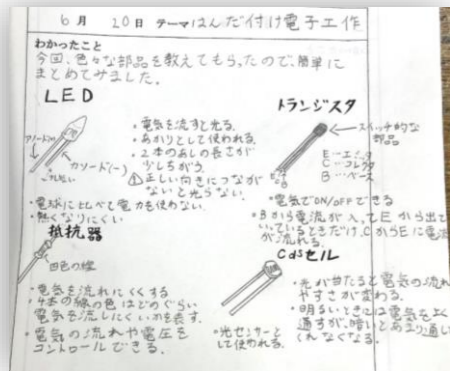 6月 20日 テーマ はんだ付け電子工作
わかったこと
今回、色々な部品を教えてもらったので、簡単に
まとめてみました。
LED
アノード(+)
カソード(-)
・電気を流すと光る。
・あかりとして使われる。
・2本のあしの長さが
少しちがう。
正しい向きにつなが
ないと光らない。
・電球に比べて電力を使わない。
・熱くなりにくい
トランジスタ
スイッチ的な
部品
E…エミッタ
C…コレクタ
B…ベース
E
C
B
・電気でON/OFFできる
・BからE電流が入ってEから出て
いているときだけ、CからEに電流
が流れる。
抵抗器
四色の線
・電気を流れにくくする
・4本の線の色はどのぐらい
電気を流しにくいかを表す。
・電気の流れや電圧を
コントロールできる。
Cdsセル
・光が当たると電気の流れ
やすさが変わる。
・明るいときには電気をよく
通すが、暗いとあまり通し
くれなくなる。
・光センサーと
して使われる。